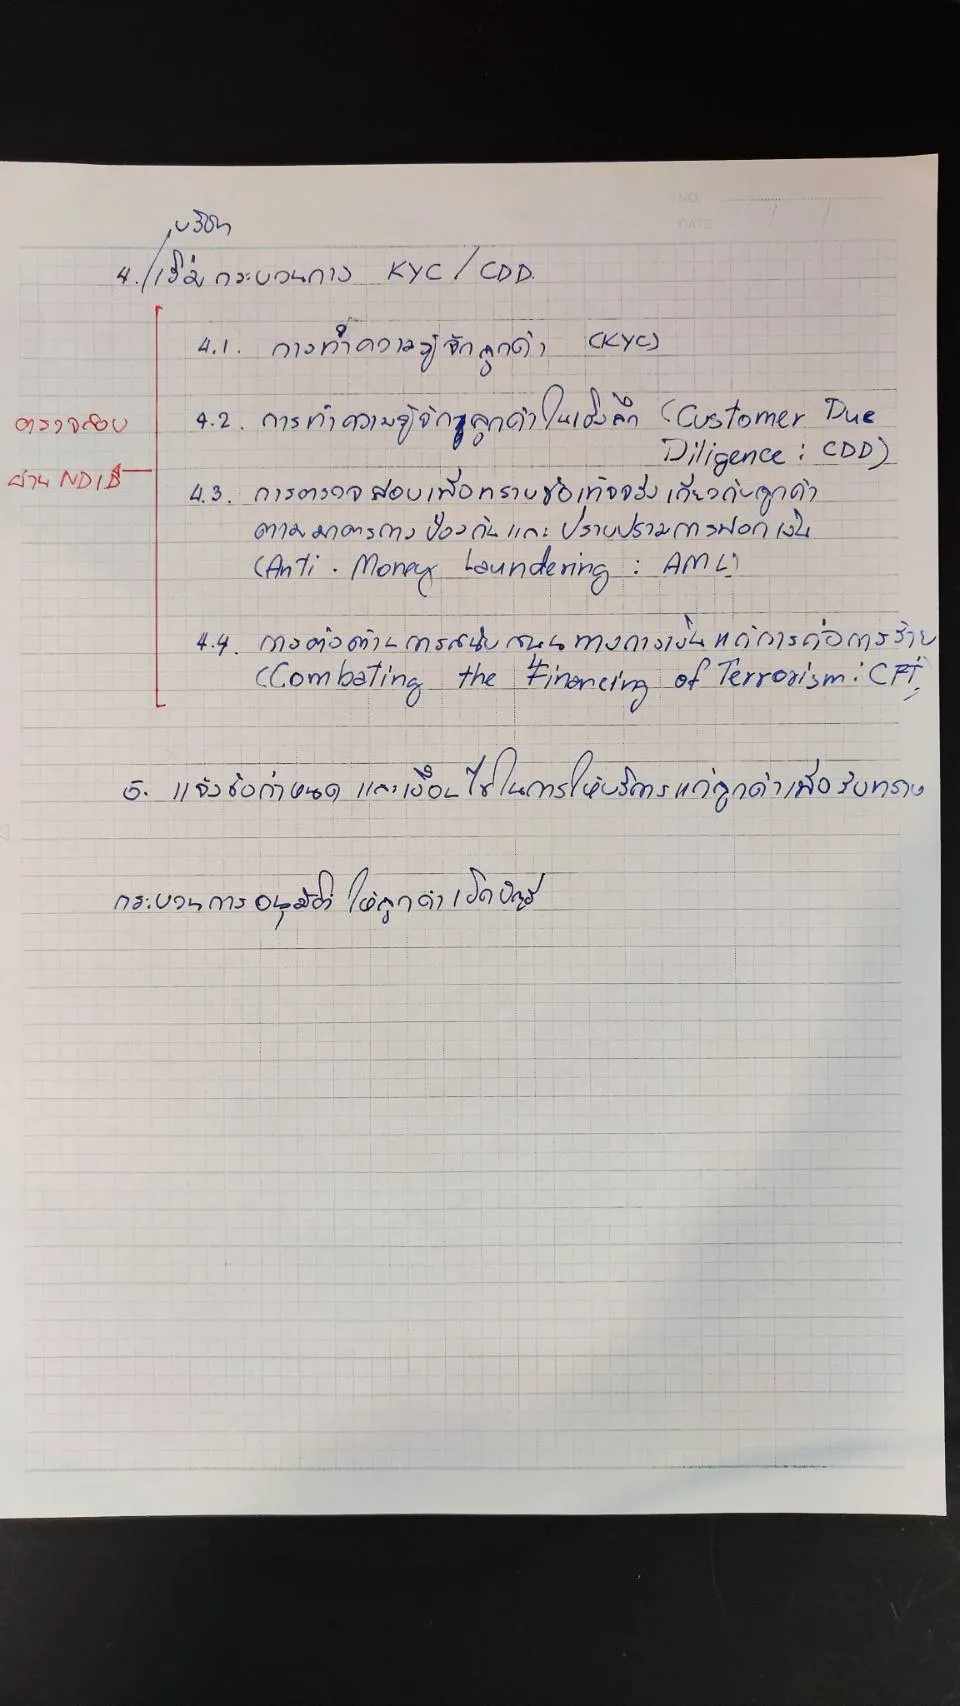 NO.
DATE
บริษัท
4. เริ่มกระบวนการ KYC / CDD.
4.1. การทำความรู้จักลูกค้า (KYC)
ตรวจสอบ
4.2. การทำความรู้จักลูกค้าในเชิงลึก (Customer Due
Diligence : CDD)
ผ่าน NDID
4.3. การตรวจสอบเพื่อทราบข้อเท็จจริงเกี่ยวกับลูกค้า
ตามมาตรการป้องกันและปราบปรามการฟอกเงิน
(Anti - Money Laundering : AML)
4.4. การต่อต้านการสนับสนุนทางการเงินแก่การก่อการร้าย
(Combating the Financing of Terrorism : CFT)
5. แจ้งข้อกำหนด และเงื่อนไขในการให้บริการแก่ลูกค้าเพื่อรับทราบ
กระบวนการอนุมัติให้ลูกค้าเปิดบัญชี